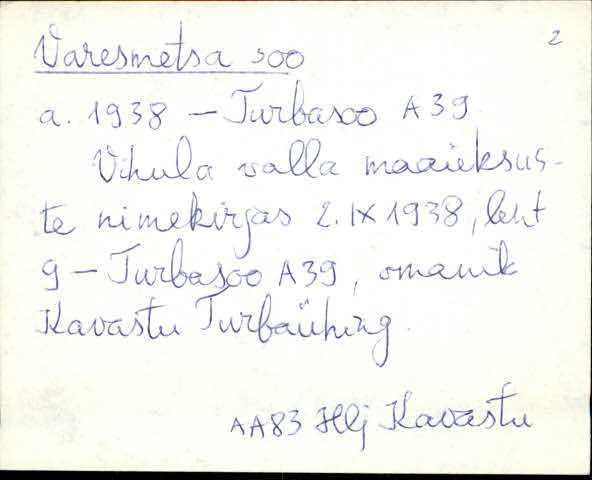 2
Varesmetsa soo
a. 1938 – Turbasoo A39.
Vihula valla maaüksus-
te nimekirjas 2.IX 1938, leht
9 – Turbasoo A39, omanik
Kavastu Turbaühing.
AA83 Hlj Kavastu